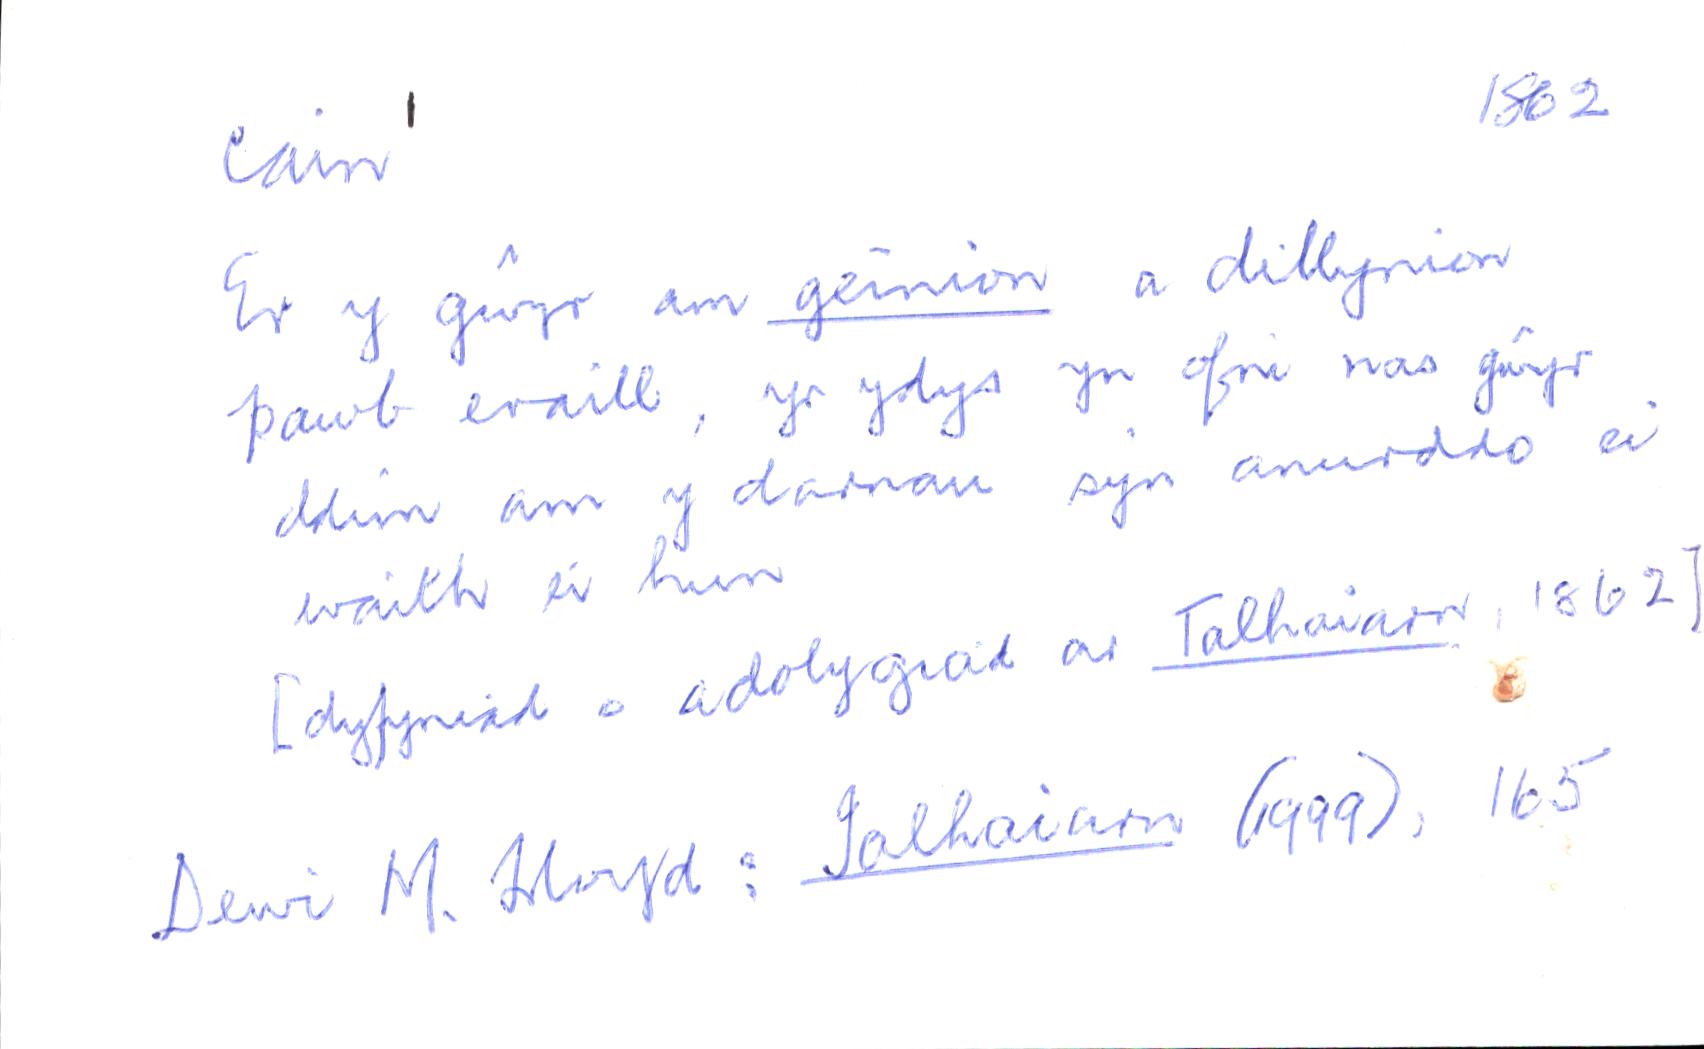 1862
cain¹
Er y gŵyr am geinion a dillynion
pawb eraill, yr ydys yn ofni nas gŵyr
ddim am y darnau sy'n anurddo ei
waith ei hun
[dyfyniad o adolygiad ar Talhaiarn, 1862]
Dewi M. Lloyd: Talhaiarn (1999), 165